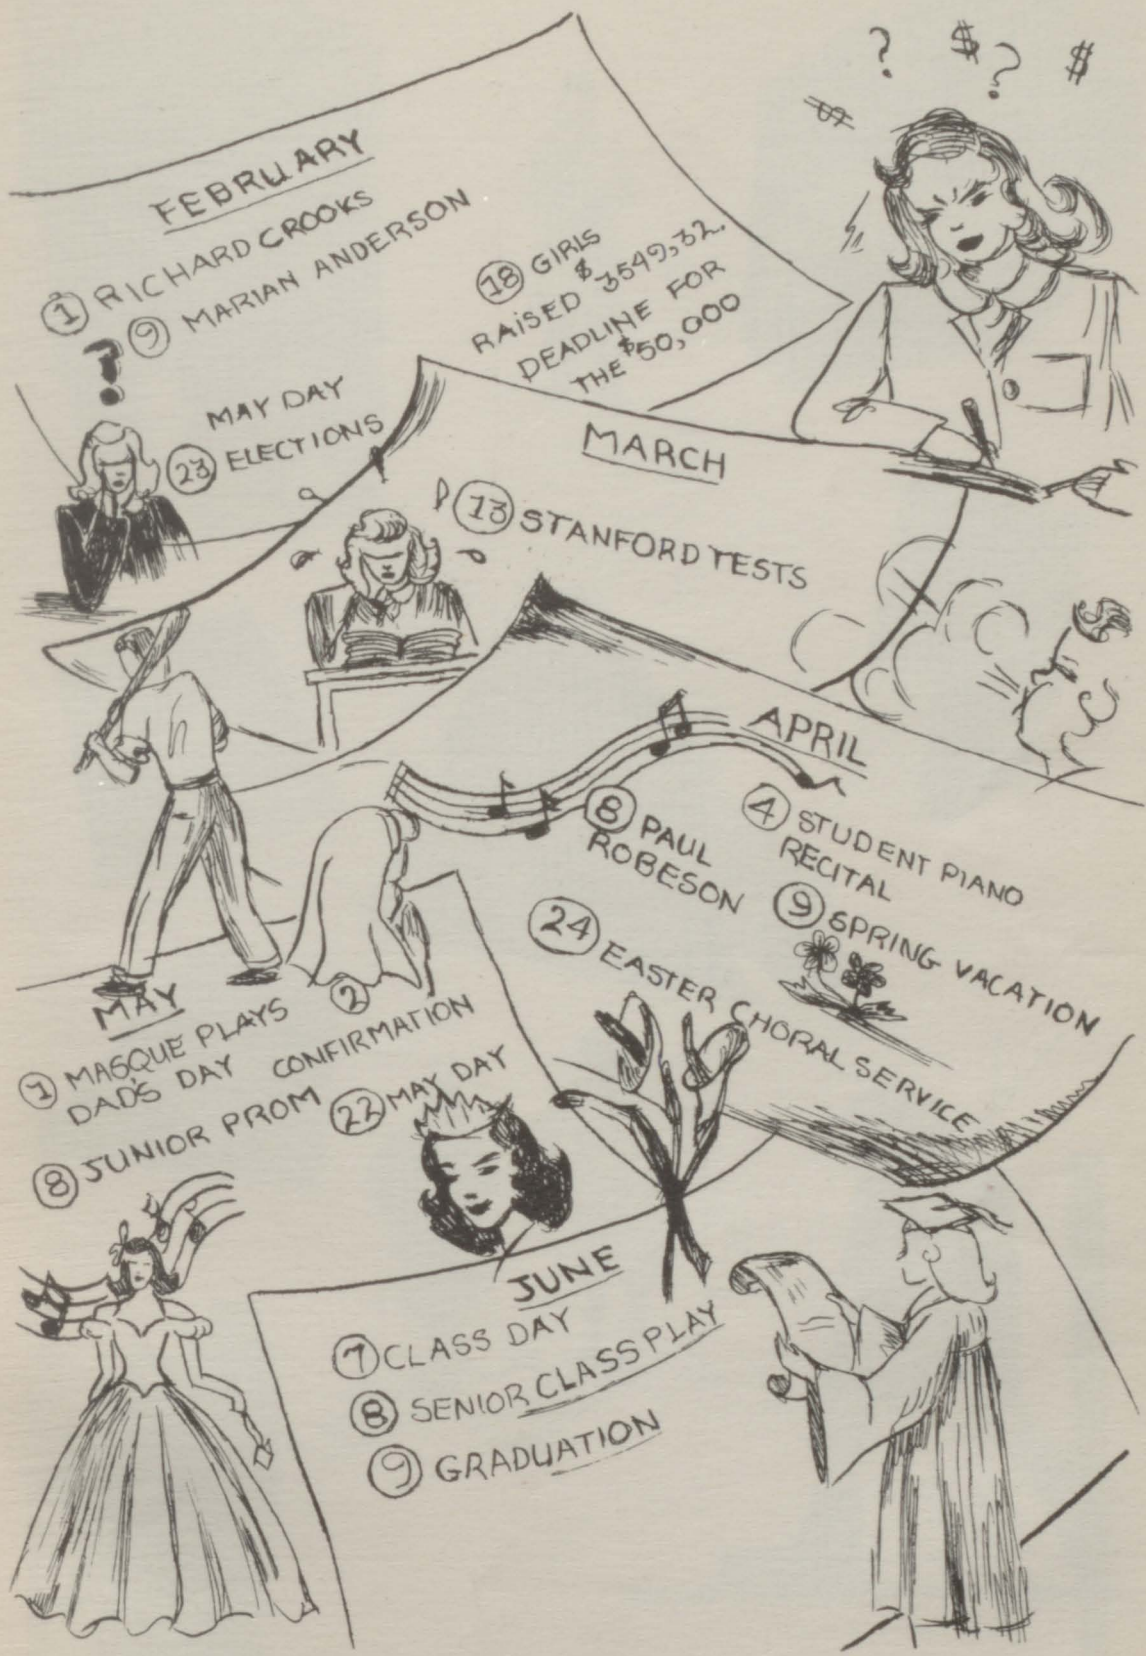 ? $ ? $
$
FEBRUARY
① RICHARD CROOKS
⑨ MARIAN ANDERSON
⑱ GIRLS
RAISED $3549,32.
DEADLINE FOR
THE $50,000
?
MAY DAY
㉓ ELECTIONS
MARCH
⑬ STANFORD TESTS
APRIL
④ STUDENT PIANO
RECITAL
⑧ PAUL
ROBESON
⑨ SPRING VACATION
㉔ EASTER CHORAL SERVICE
MAY
① MASQUE PLAYS
DAD'S DAY
②
CONFIRMATION
⑧ JUNIOR PROM
㉒ MAY DAY
JUNE
⑦ CLASS DAY
⑧ SENIOR CLASS PLAY
⑨ GRADUATION